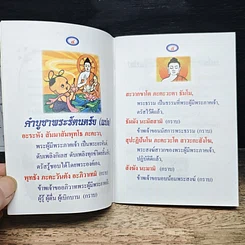 คำบูชาพระรัตนตรัย (แปล)
อะระหัง สัมมาสัมพุทโธ ภะคะวา,
พระผู้มีพระภาคเจ้า เป็นพระอรหันต์,
ดับเพลิงกิเลส ดับเพลิงทุกข์สิ้นเชิง,
ตรัสรู้ชอบได้โดยพระองค์เอง,
พุทธัง ภะคะวันตัง อะภิวาเทมิ
ข้าพเจ้าอภิวาทพระผู้มีพระภาคเจ้า,
ผู้รู้ ผู้ตื่น ผู้เบิกบาน (กราบ)
สะวากขาโต ภะคะวะตา ธัมโม,
พระธรรม เป็นธรรมที่พระผู้มีพระภาคเจ้า,
ตรัสไว้ดีแล้ว,
ธัมมัง นะมัสสามิ (กราบ)
ข้าพเจ้านมัสการพระธรรม (กราบ)
สุปะฏิปันโน ภะคะวะโต สาวะกะสังโฆ,
พระสงฆ์สาวกของพระผู้มีพระภาคเจ้า,
ปฏิบัติดีแล้ว,
สังฆัง นะมามิ (กราบ)
ข้าพเจ้านอบน้อมพระสงฆ์ (กราบ)